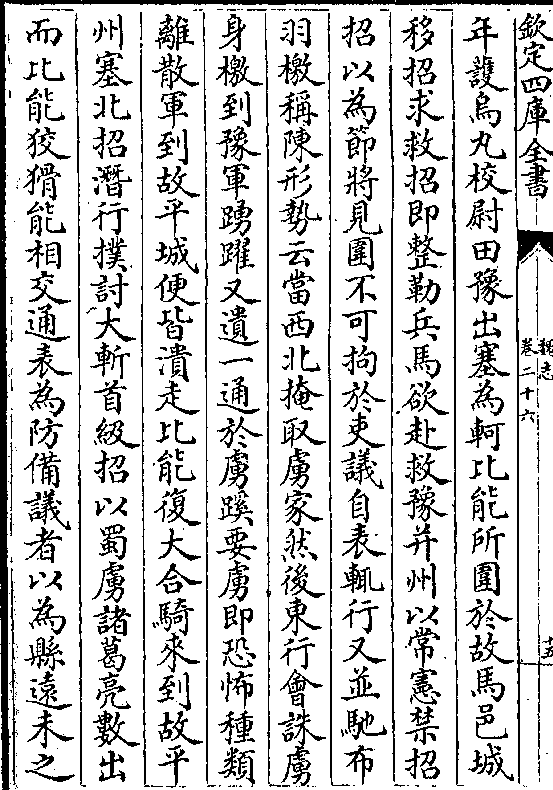 欽定四庫全書
魏志
卷二十六
年護烏丸校尉田豫出塞為軻比能所圍於故馬邑城
移招求救招即整勒兵馬欲赴救豫并州以常憲禁招
招以為節將見圍不可拘於吏議自表輒行又並馳布
羽檄稱陳形勢云當西北掩取虜家然後東行會誅虜
身檄到豫軍踴躍又遺一通於虜蹊要虜即恐怖種類
離散軍到故平城便皆潰走比能復大合騎來到故平
州塞北招潛行撲討大斬首級招以蜀虜諸葛亮數出
而比能狡猾能相交通表為防備議者以為縣遠未之